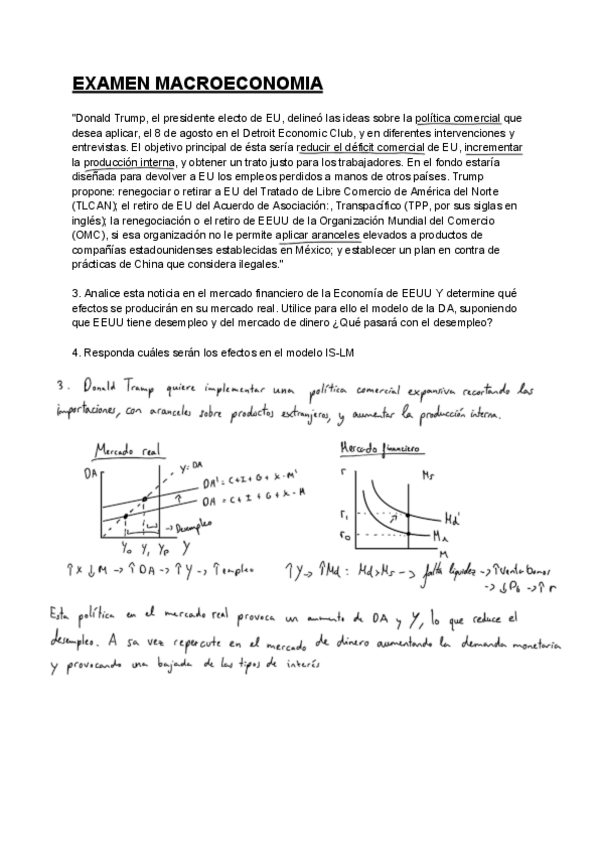 EXAMEN MACROECONOMIA
"Donald Trump, el presidente electo de EU, delineó las ideas sobre la política comercial que
desea aplicar, el 8 de agosto en el Detroit Economic Club, y en diferentes intervenciones y
entrevistas. El objetivo principal de ésta sería reducir el déficit comercial de EU, incrementar
la producción interna, y obtener un trato justo para los trabajadores. En el fondo estaría
diseñada para devolver a EU los empleos perdidos a manos de otros países. Trump
propone: renegociar o retirar a EU del Tratado de Libre Comercio de América del Norte
(TLCAN); el retiro de EU del Acuerdo de Asociación:, Transpacífico (TPP, por sus siglas en
inglés); la renegociación o el retiro de EEUU de la Organización Mundial del Comercio
(OMC), si esa organización no le permite aplicar aranceles elevados a productos de
compañías estadounidenses establecidas en México; y establecer un plan en contra de
prácticas de China que considera ilegales."
3. Analice esta noticia en el mercado financiero de la Economía de EEUU Y determine qué
efectos se producirán en su mercado real. Utilice para ello el modelo de la DA, suponiendo
que EEUU tiene desempleo y del mercado de dinero ¿Qué pasará con el desempleo?
4. Responda cuáles serán los efectos en el modelo IS-LM
3. Donald Trump quiere implementar una política comercial expansiva recortando las
importaciones, con aranceles sobre productos extranjeros, y aumentar la producción interna.
Mercado real
DA
Y=DA
DA'=C+I+G+X-M'
DA=C+I+G+X-M
Desempleo
Y0 Y1 Yp Y
↑X ↓M → ↑DA → ↑Y → ↑empleo
Mercado financiero
r
Ms
r1
r0
Md'
Md
M
↑Y → ↑Md : Md>Ms → falta liquidez → ↑Venta bonos
→ ↓Pb → ↑r
Esta política en el mercado real provoca un aumento de DA y Y, lo que reduce el
desempleo. A su vez repercute en el mercado de dinero aumentando la demanda monetaria
y provocando una bajada de los tipos de interés